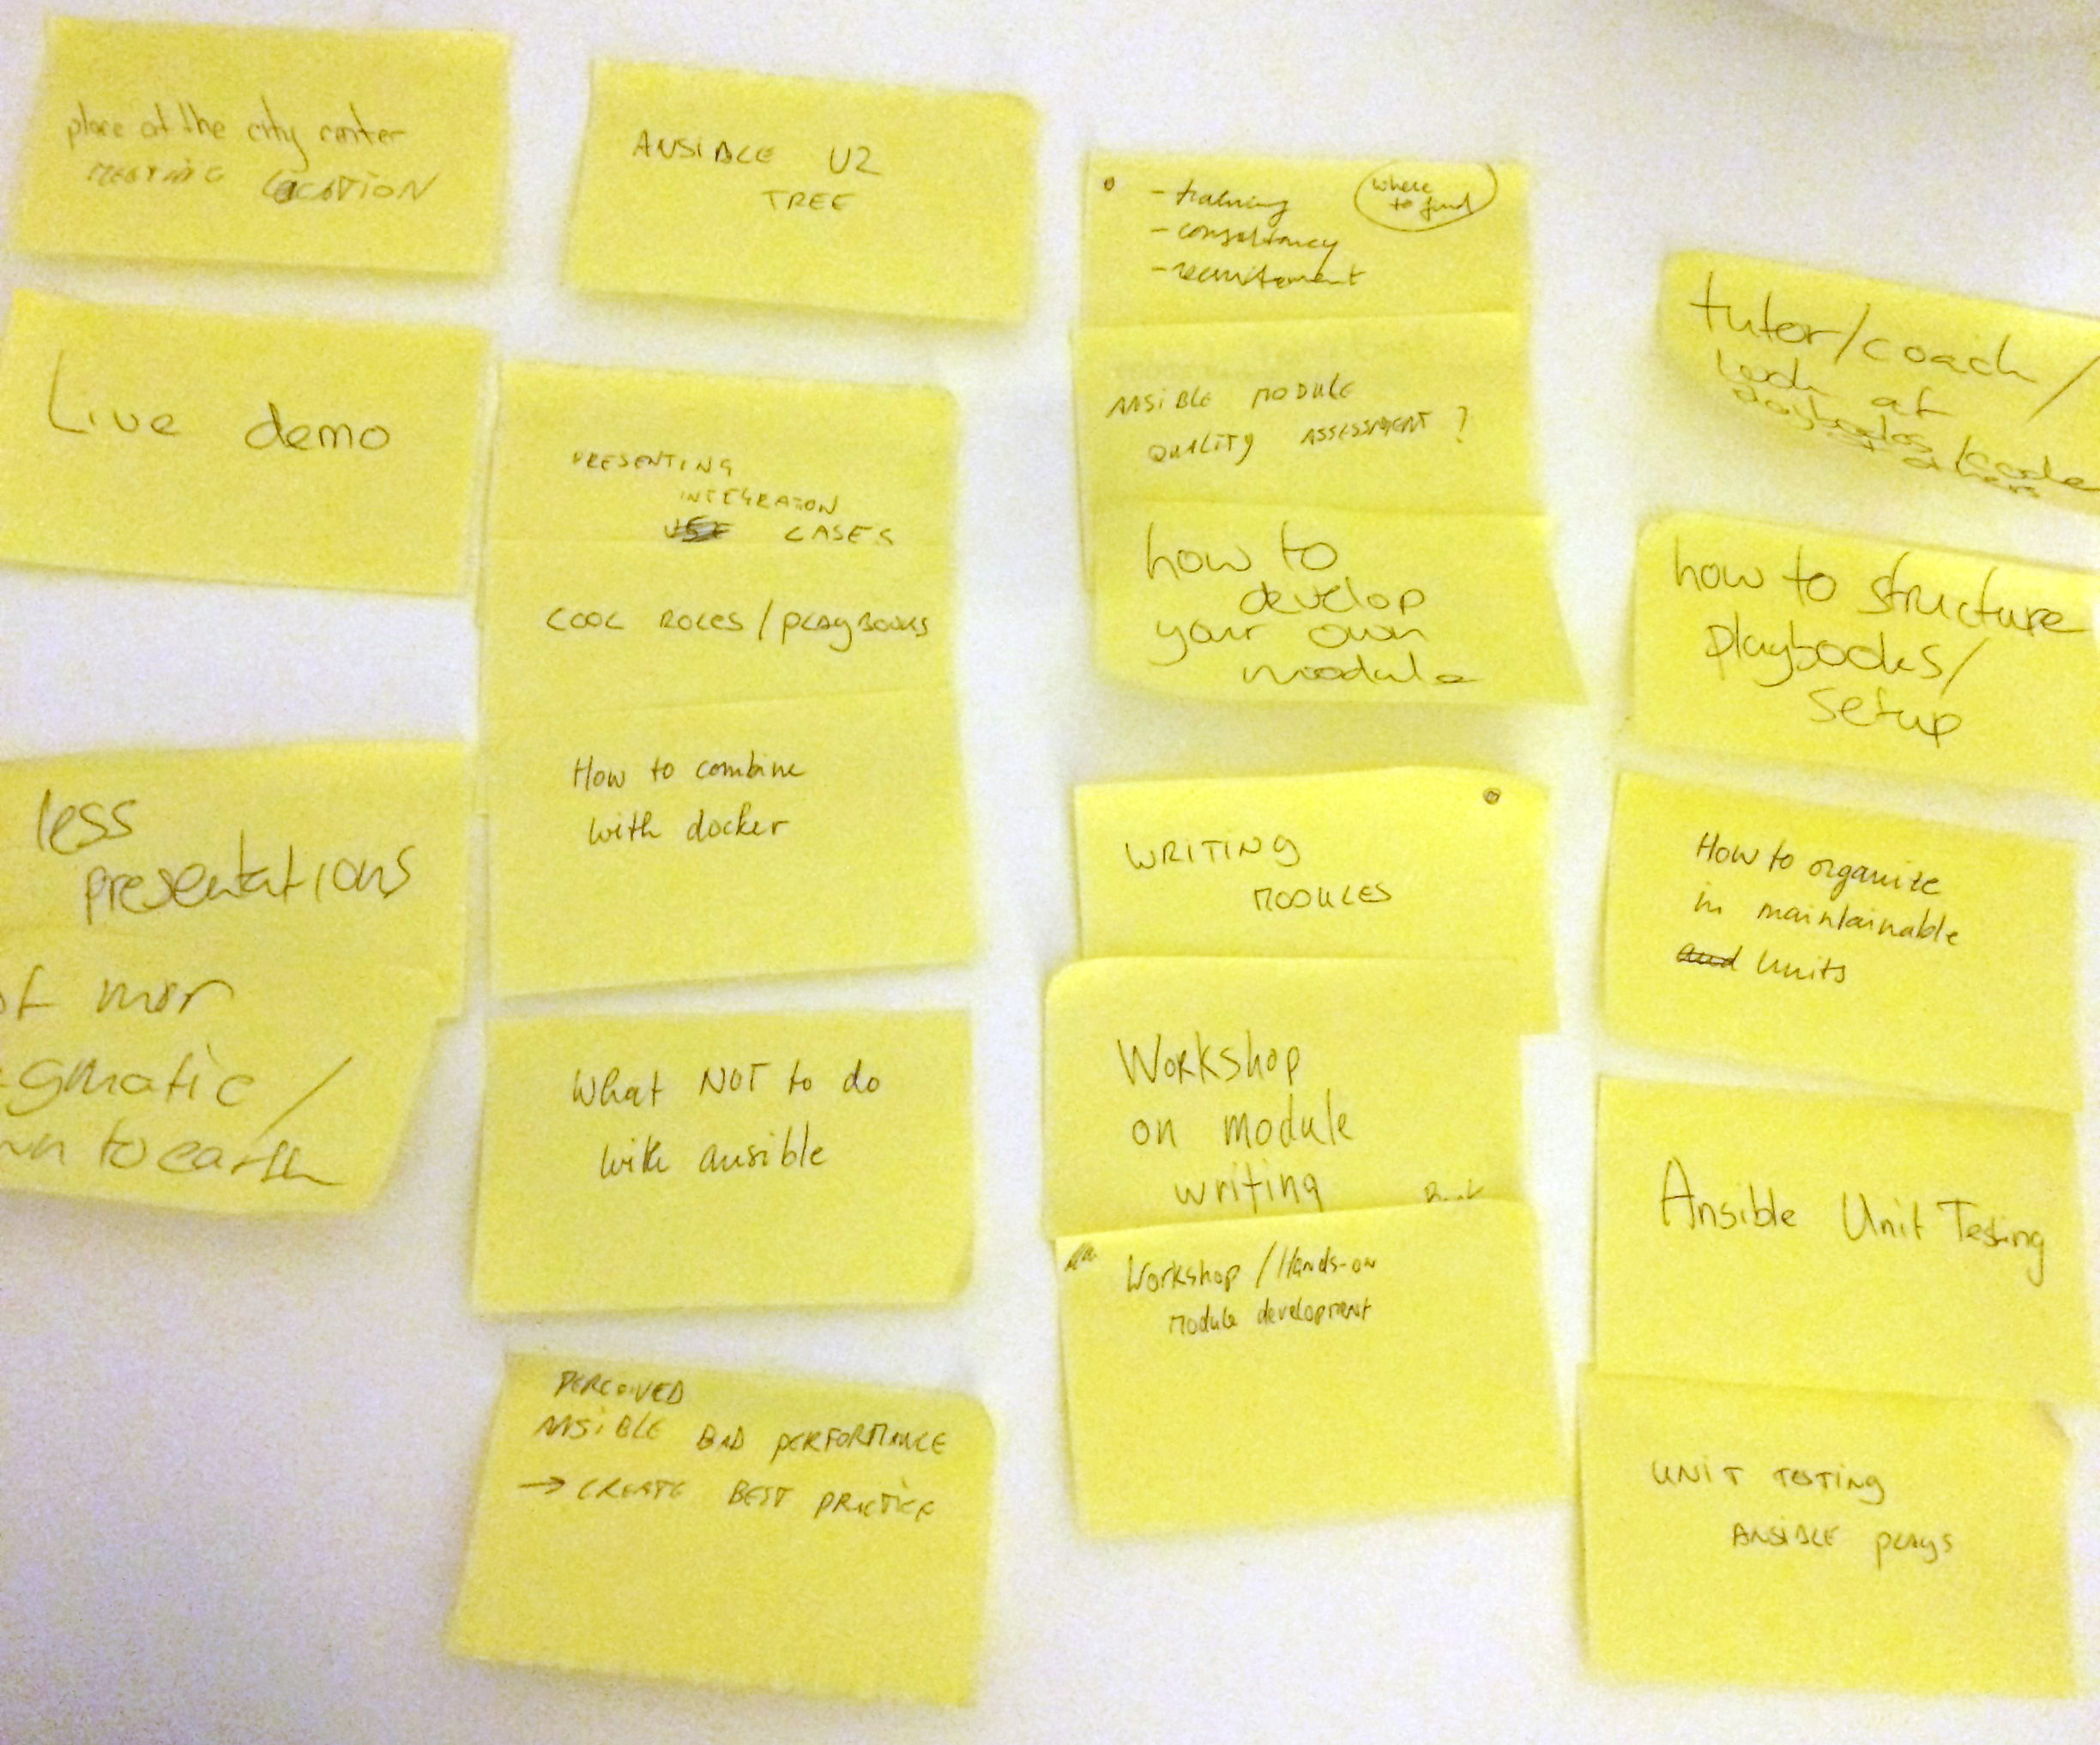 place at the city center
MEETING LOCATION
Live demo
less
presentations
mor
gmatic /
wn to earth
ANSIBLE V2
TREE
PRESENTING
INTEGRATION
USE CASES
COOL ROLES / PLAYBOOKS
How to combine
with docker
What NOT to do
with ansible
PERCEIVED
ANSIBLE BAD PERFORMANCE
→ CREATE BEST PRACTICE
- training
- consultancy
- recruitement
where
to find
ANSIBLE MODULE
QUALITY ASSESSMENT ?
how to
develop
your own
module
WRITING
MODULES
Workshop
on module
writing
Workshop / Hands-on
Module development
tutor/coach/
look at
playbooks/code
of others
how to structure
playbooks/
setup
How to organize
in maintainable
and units
Ansible Unit Testing
UNIT TESTING
ANSIBLE PLAYS